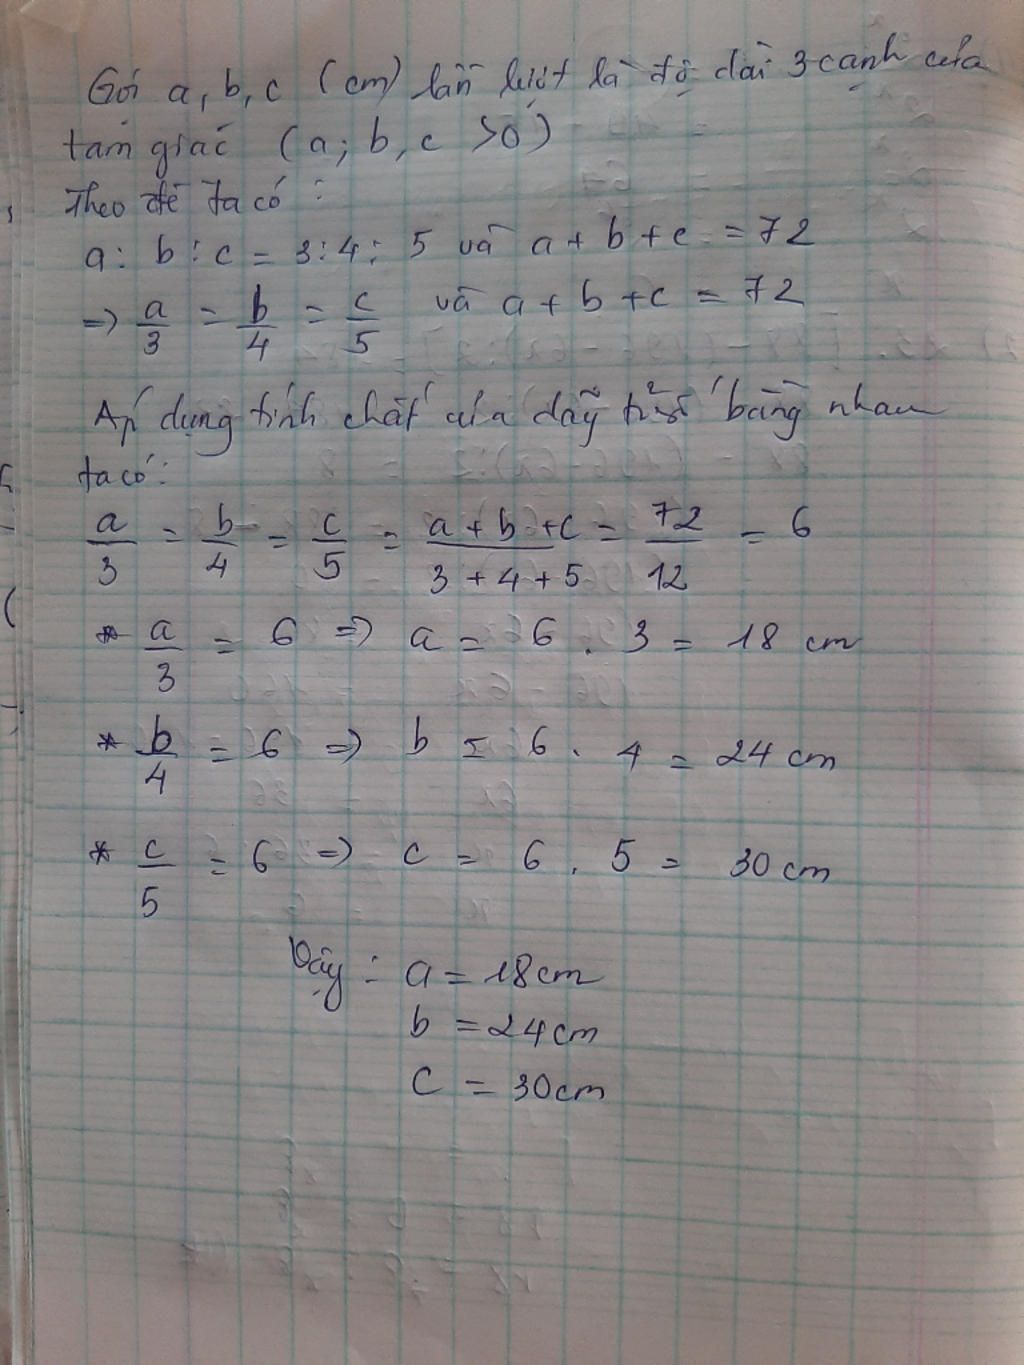 Gọi a, b, c (cm) lần lượt là độ dài 3 cạnh của
tam giác (a; b, c >0)
Theo đề ta có :
a : b : c = 3 : 4 : 5 và a + b + c = 72
=> a/3 = b/4 = c/5 và a + b + c = 72
Áp dụng tính chất của dãy tỉ số bằng nhau
ta có:
a/3 = b/4 = c/5 = (a + b + c)/(3 + 4 + 5) = 72/12 = 6
* a/3 = 6 => a = 6 . 3 = 18 cm
* b/4 = 6 => b = 6 . 4 = 24 cm
* c/5 = 6 => c = 6 . 5 = 30 cm
Vậy : a = 18cm
b = 24cm
c = 30cm